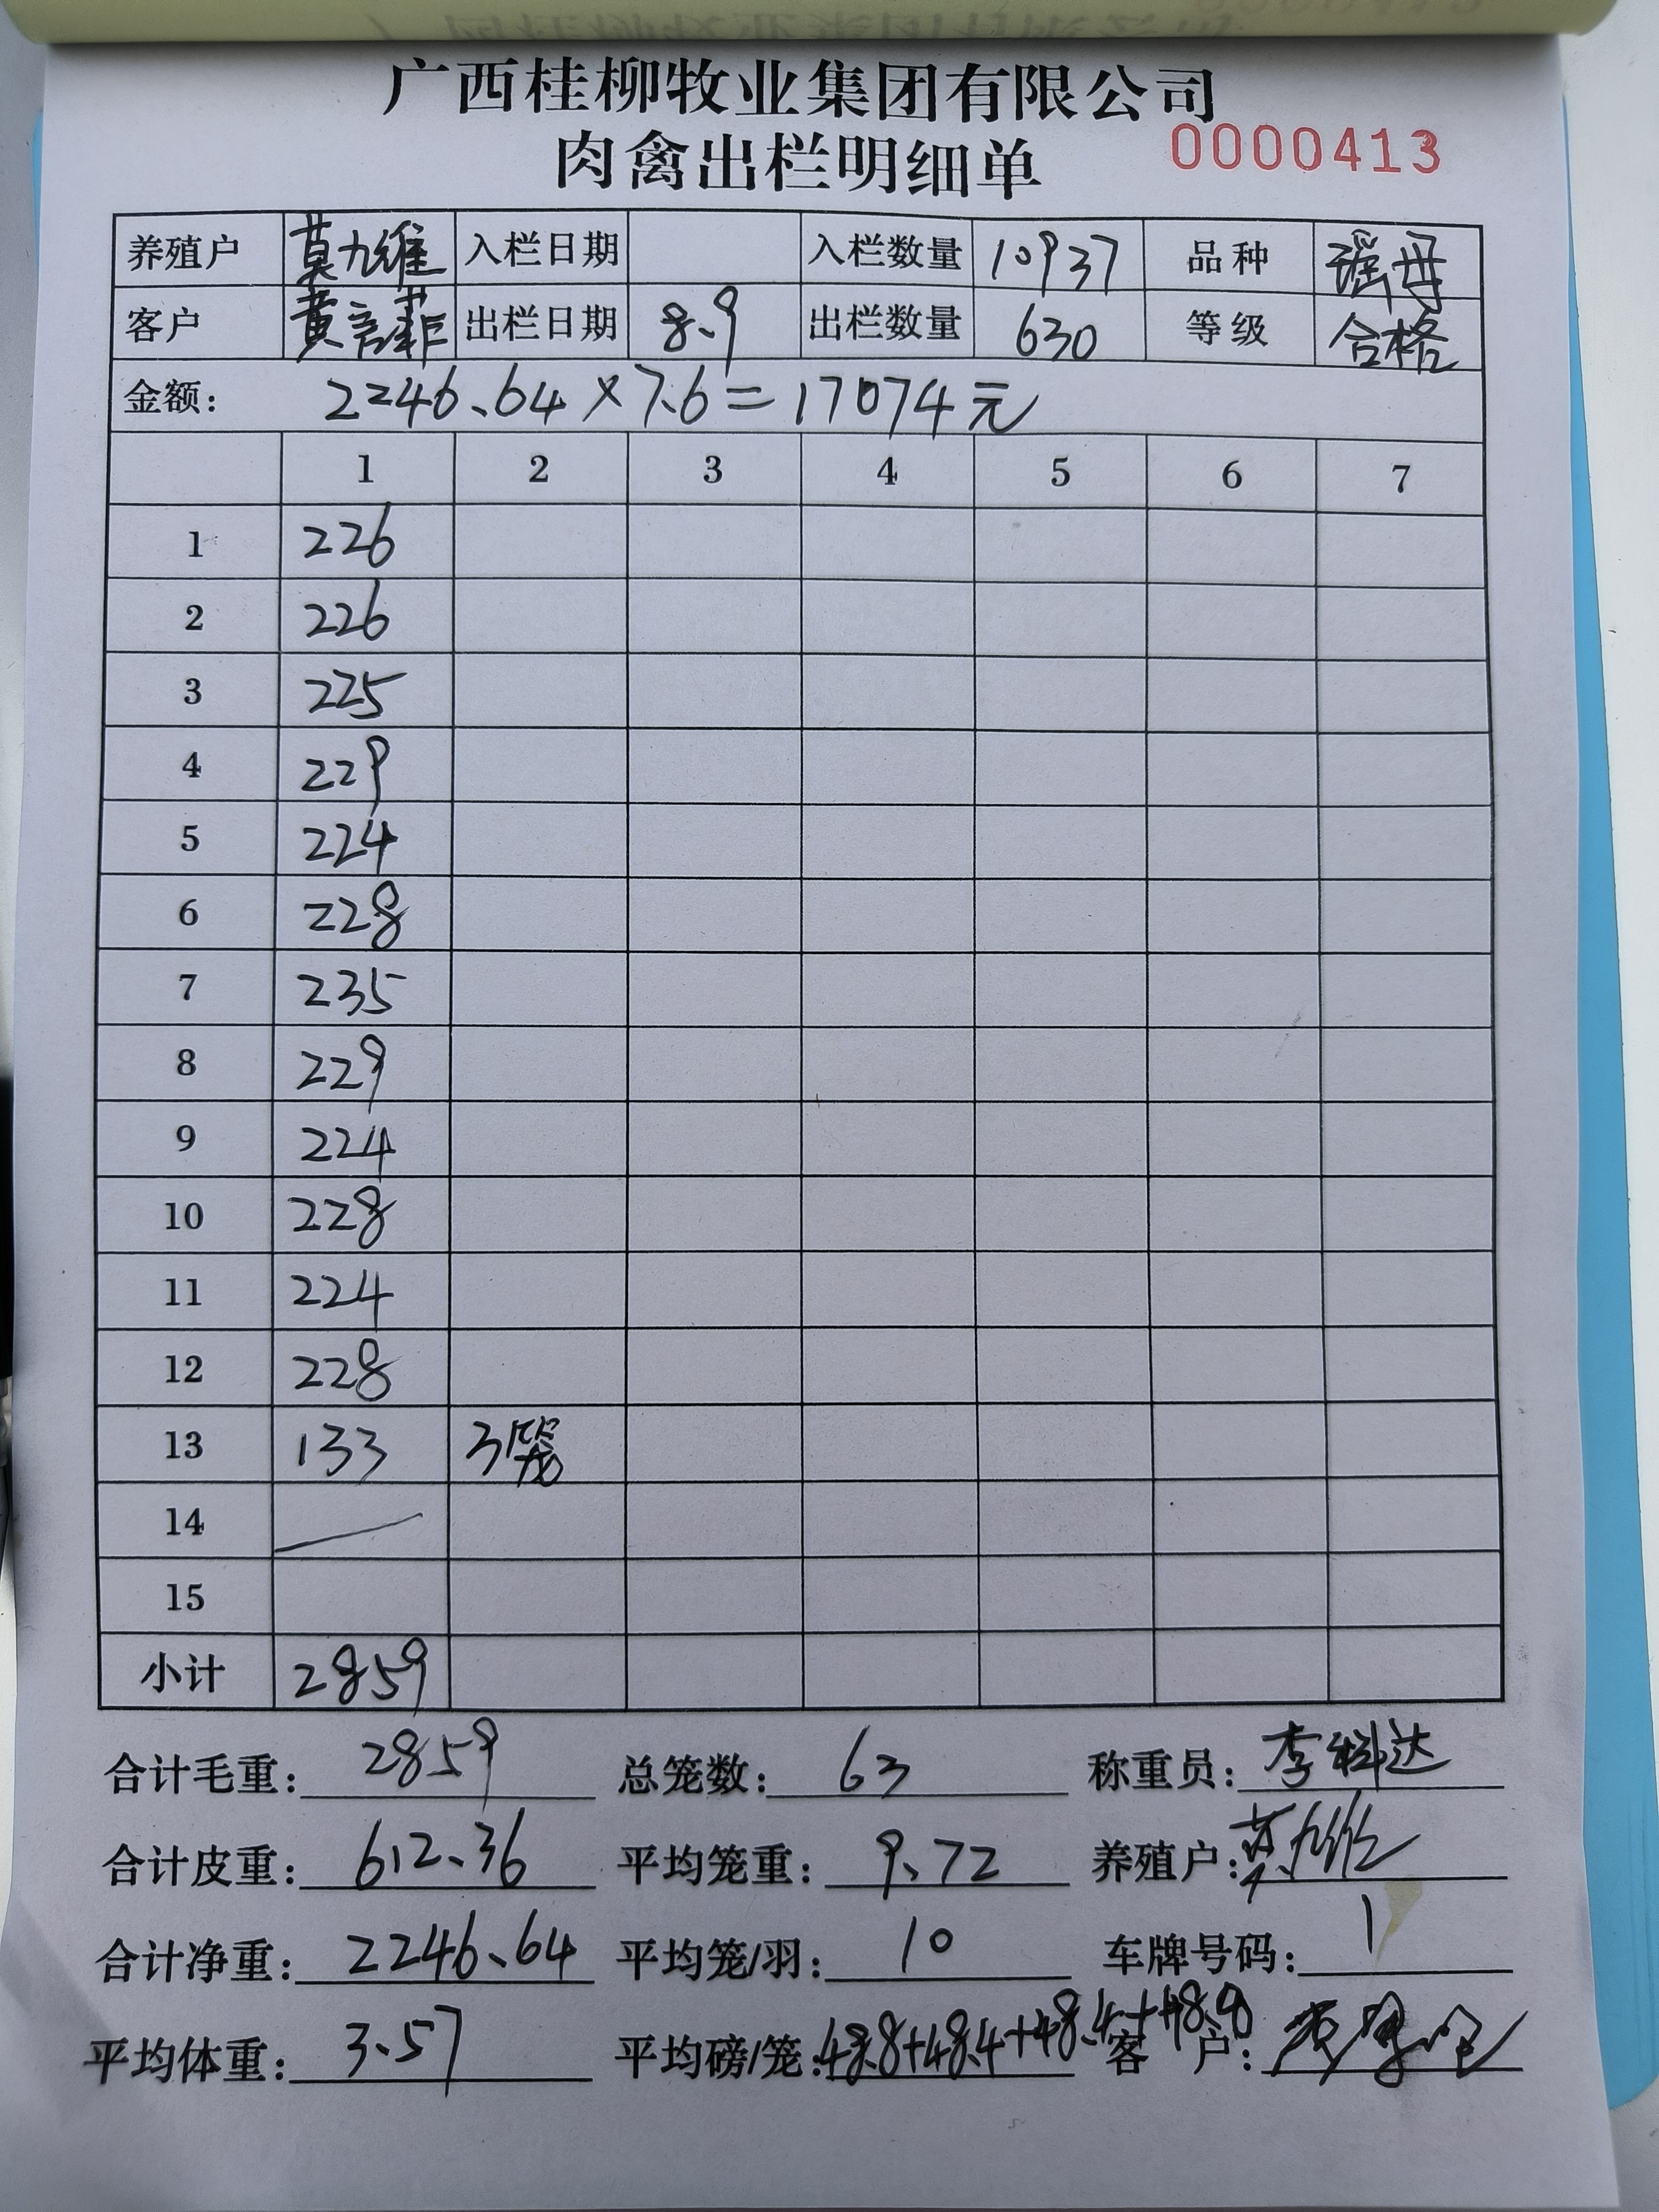 广西桂柳牧业集团有限公司
肉禽出栏明细单
0000413
养殖户 莫九维 入栏日期 入栏数量 10937 品种 瑶母
客户 黄言菲 出栏日期 8.9 出栏数量 630 等级 合格
金额: 2246.64×7.6=17074元
1 2 3 4 5 6 7
1 226
2 226
3 225
4 229
5 224
6 228
7 235
8 229
9 224
10 228
11 224
12 228
13 133 3笼
14
15
小计 2859
合计毛重: 2859 总笼数: 63 称重员: 李科达
合计皮重: 612.36 平均笼重: 9.72 养殖户: 莫九维
合计净重: 2246.64 平均笼/羽: 10 车牌号码: 1
平均体重: 3.57 平均磅/笼: 48.8+48.4+48.4+48.8 客户: